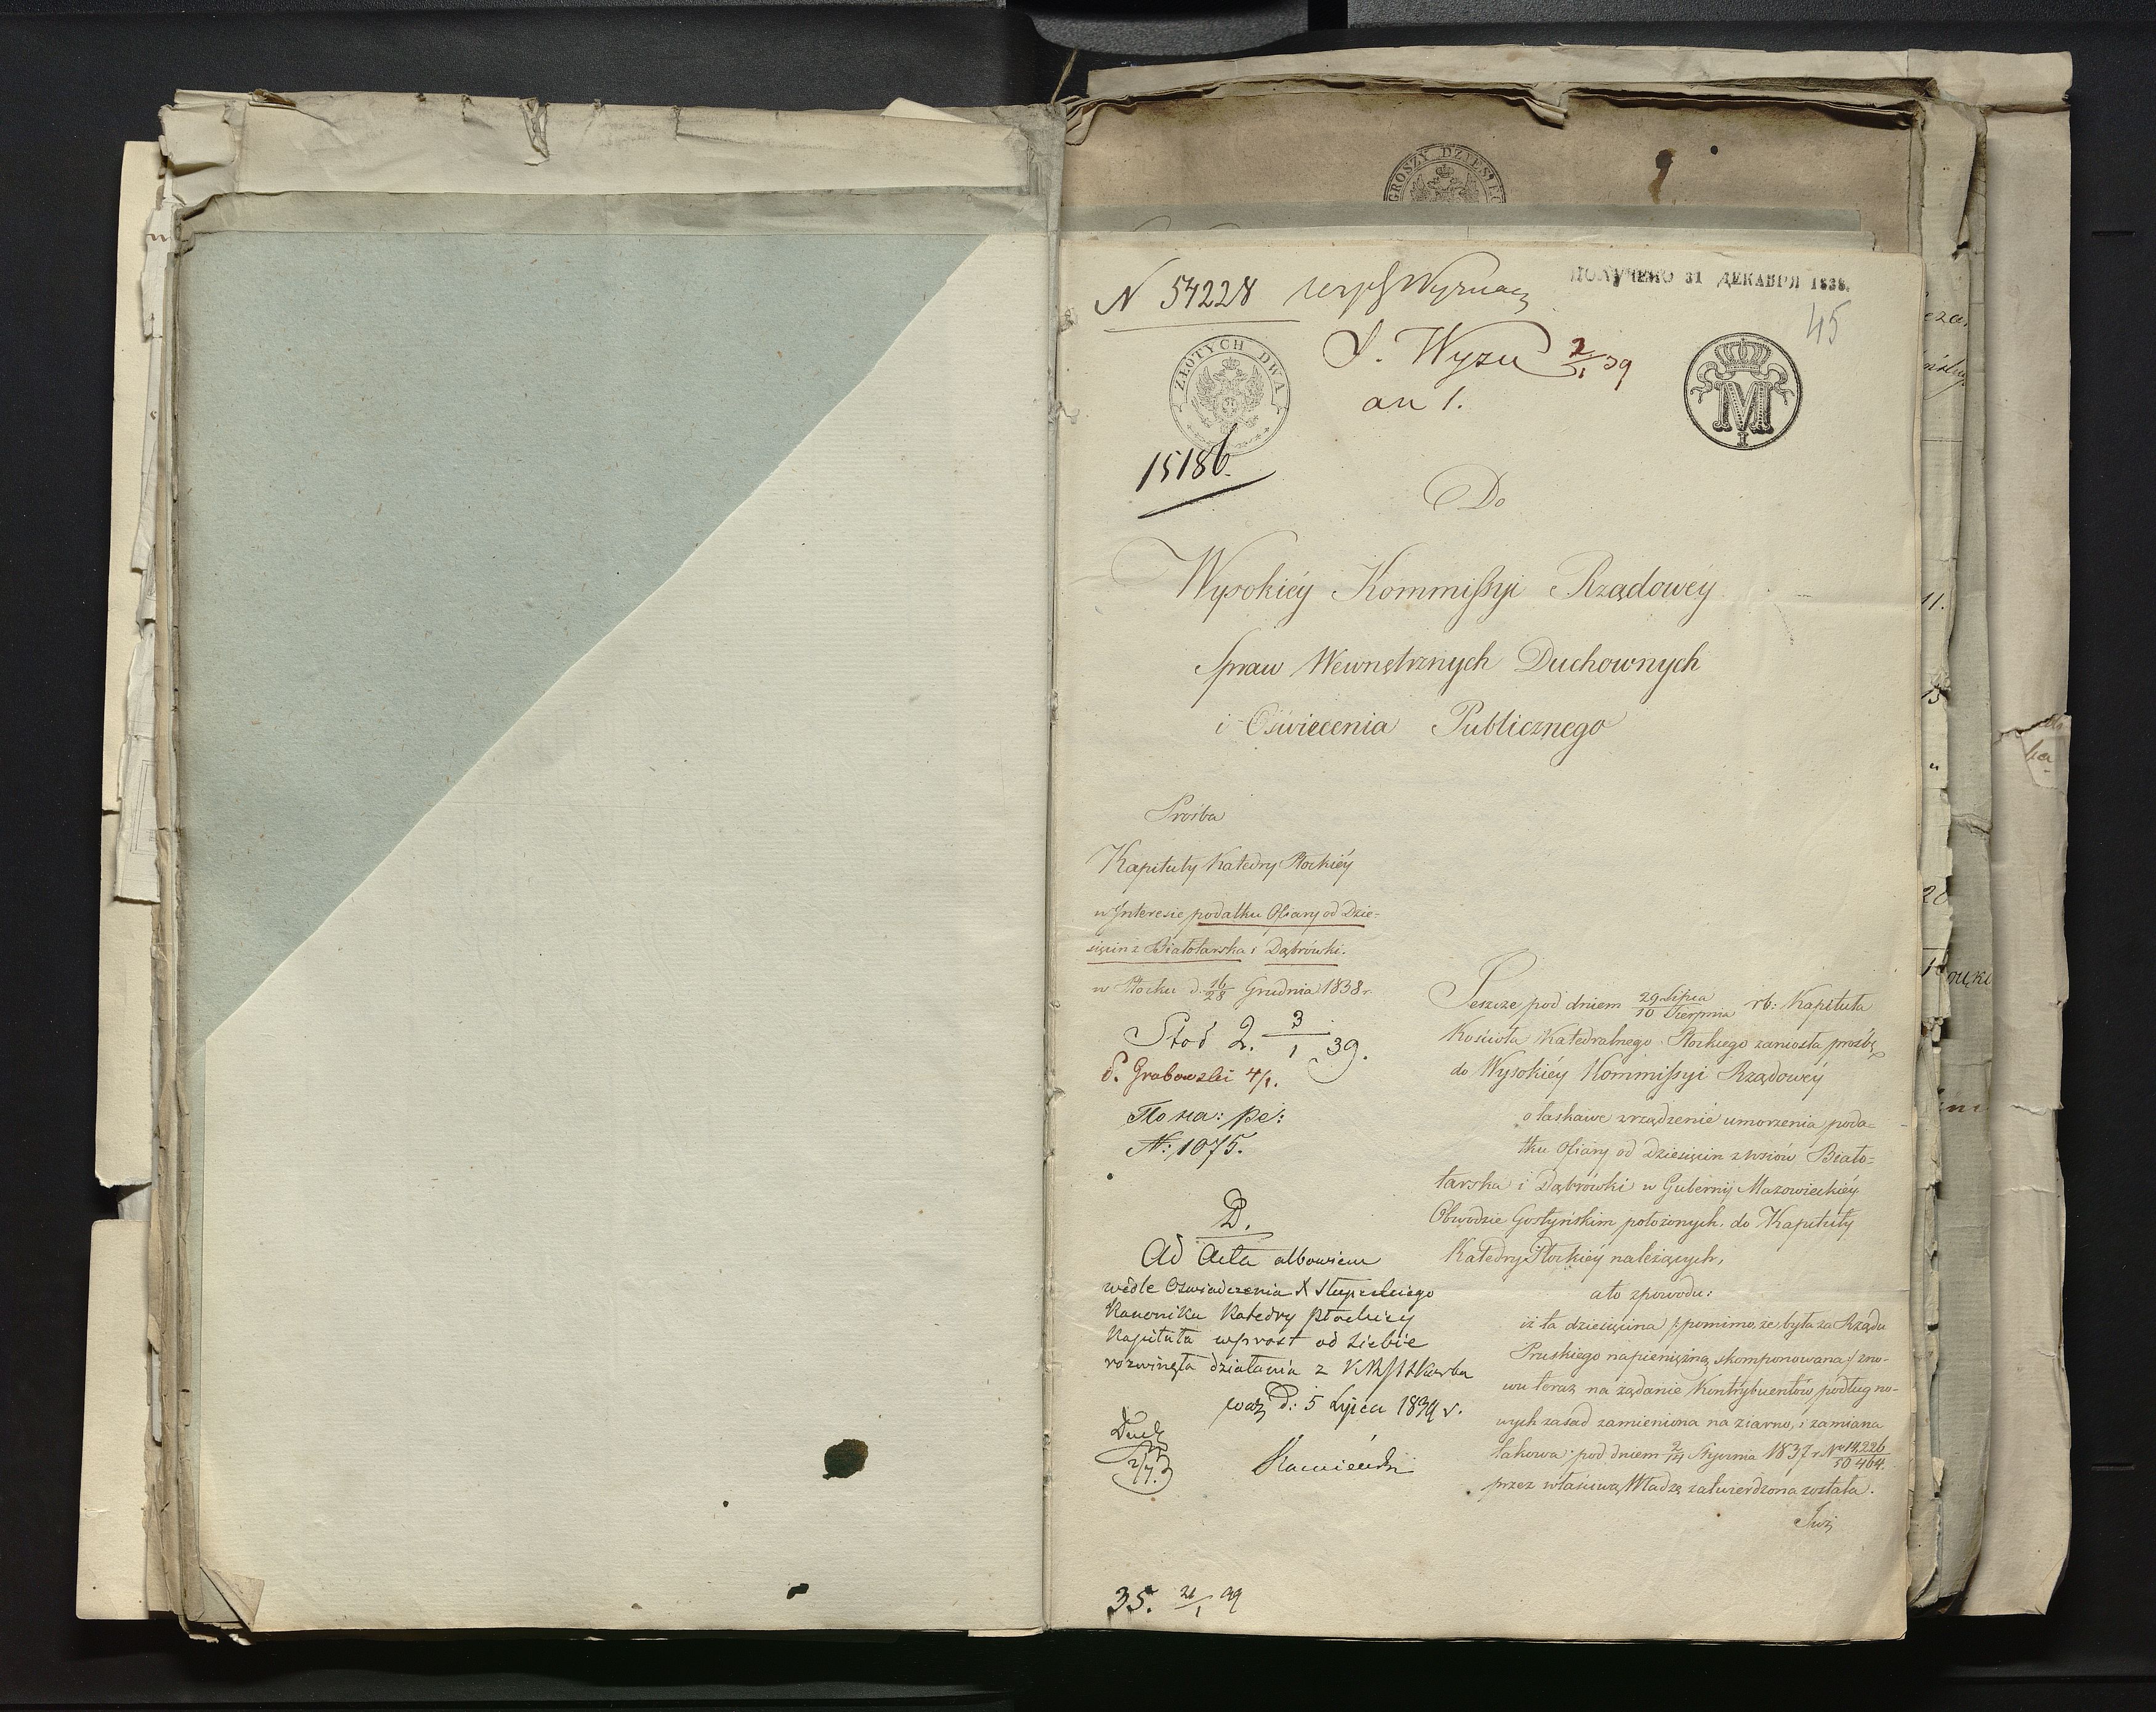 GROSZY DZIESIĘĆ
N 54228
ПОЛУЧЕНО 31 ДЕКАБРЯ 1838.
45
ZŁOTYCH DWA
S. Wyzn 2/1 39
M
I
an 1.
15186.
Do
Wysokiéy Kommissyi Rządowéy
Spraw Wewnętrznych Duchownych
i Oświecenia Publicznego
Prośba
Kapituły Katedry Płockiéy
w Interesie podatku Ofiary od Dzie-
sięcin z Białotarska i Dąbrówki.
w Płocku d. 16/28 Grudnia 1838 r.
2. 3/1 39.
P. Grabowski 4/1.
По на: ре:
N: 1075.
D.
Ad Acta albowiem
wedle Oświadczenia X Słupeckiego
Kanonika Katedry Płockiey
Kapituła wprost od siebie
rozwinęła działania z KRPiSkarbu
d: 5 Lipca 1839 r.
Duch
Kamieński
35. 21/1 39
Jeszcze pod dniem 29 Lipca/10 Sierpnia rb: Kapituła
Kościoła Katedralnego Płockiego zaniosła prośbę
do Wysokiéy Kommissyi Rządowéy
o łaskawe zrządzenie umorzenia poda=
tku Ofiary od Dziesięcin z wsiów Biało=
tarska i Dąbrówki w Gubernij Mazowieckiéy
Obwodzie Gostyńskim położonych, do Kapituły
Katedry Płockiéy należących,
a to z powodu:
iż ta dziesięcina /: pomimo, że była za Rządu
Pruskiego na pieniężną skomponowana :/ zno-
wu teraz na żądanie Kontrybuentów podług no-
wych zasad zamieniona na ziarno, i zamiana
takowa pod dniem 2/14 Stycznia 1837 r. No 14226/50464.
przez właściwą Władzę zatwierdzona została.
Już